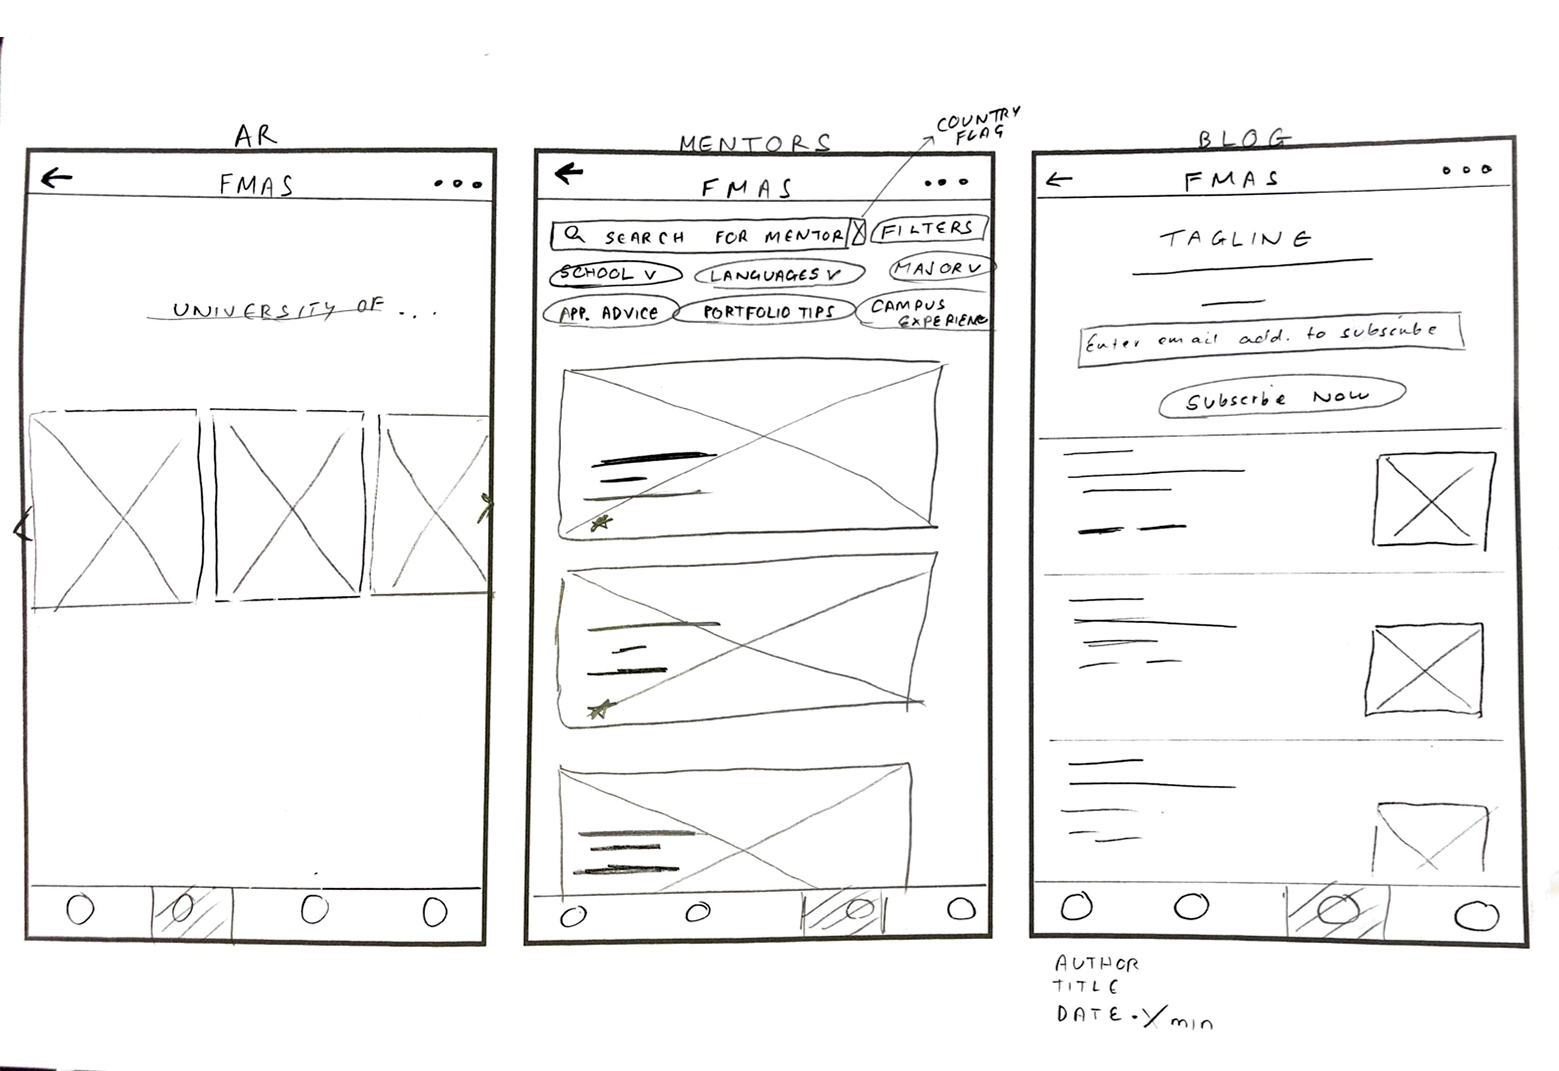 AR
FMAS
UNIVERSITY OF ...
MENTORS
COUNTRY
FLAG
FMAS
SEARCH FOR MENTOR
FILTERS
SCHOOL V
LANGUAGES V
MAJOR V
APP. ADVICE
PORTFOLIO TIPS
CAMPUS
EXPERIENC
BLOG
FMAS
TAGLINE
Enter email add. to subscribe
Subscribe Now
AUTHOR
TITLE
DATE . Y min